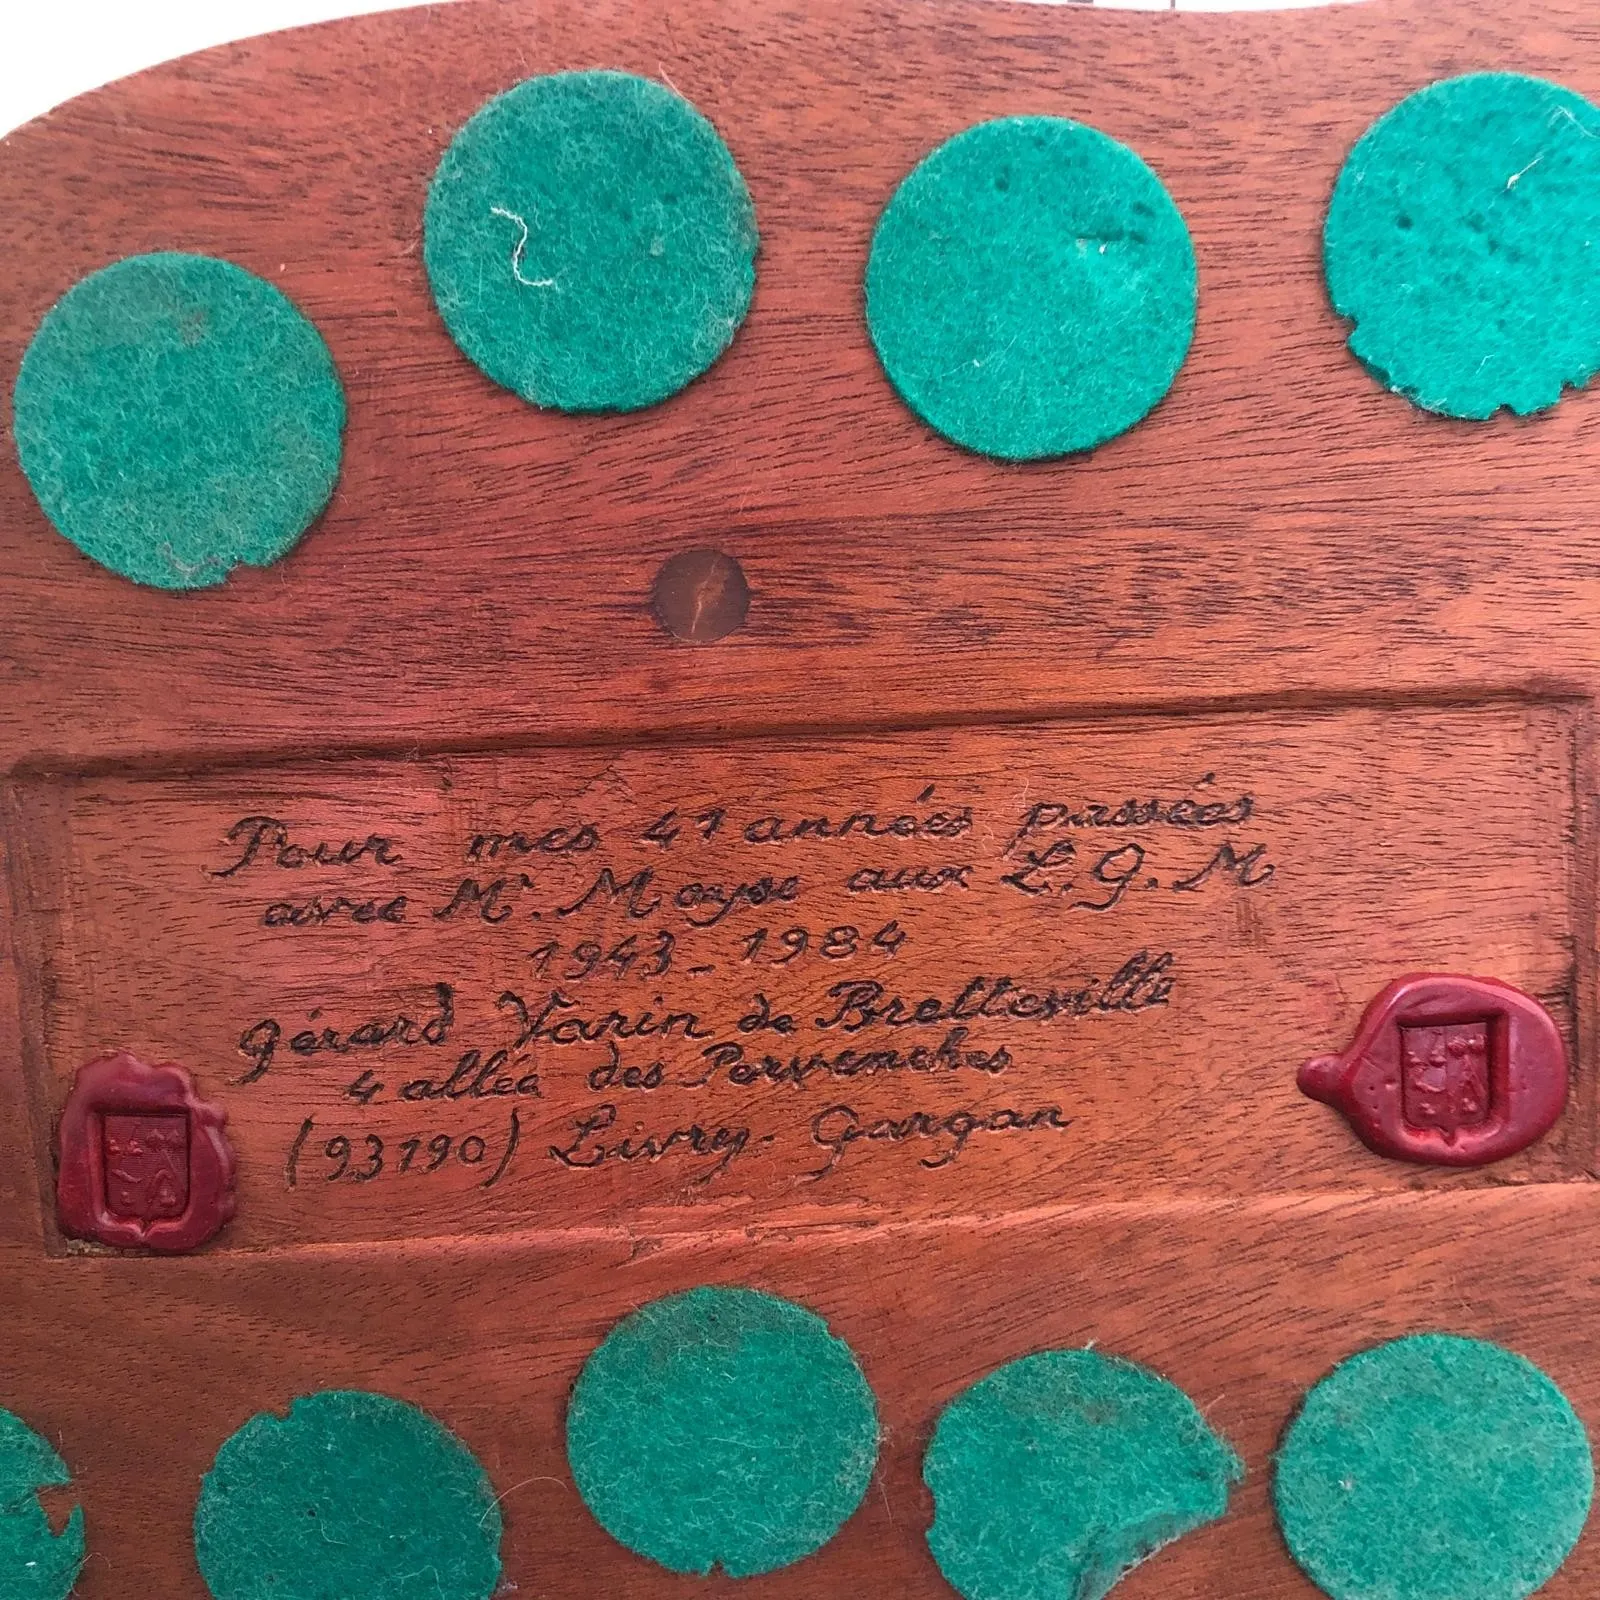 Pour mes 41 années passées
avec Mr. Moyse aux L.G.M
1943-1984
Gérard Varin de Bretteville
4 allée des Pervenches
(93190) Livry-Gargan